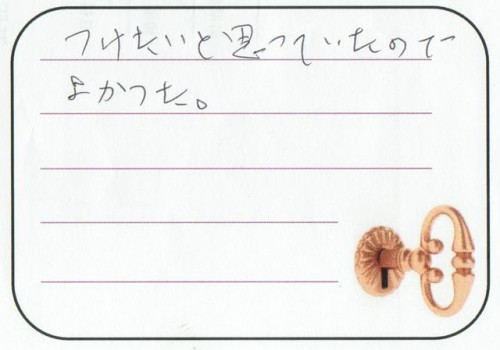 つけたいと思っていたので
よかった。